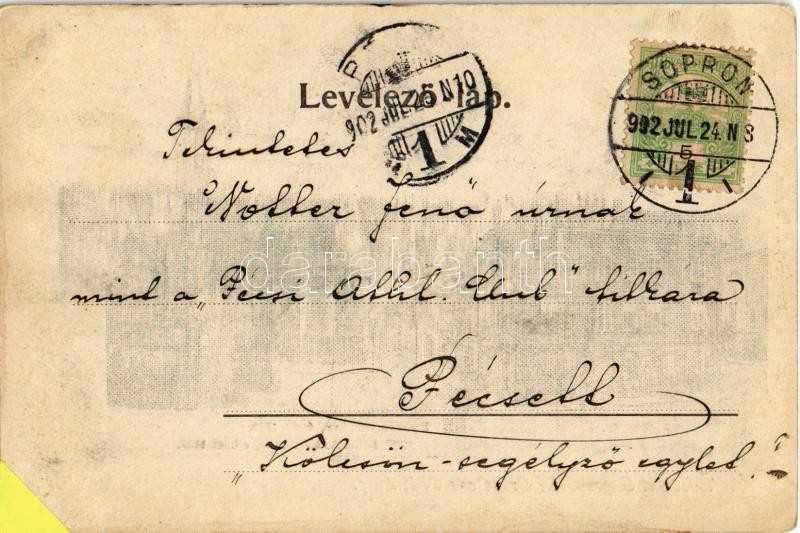 Levelező-lap.
SOPRON
902 JUL. 24. N 8
5
1
902 JUL 25 N 10
1
Tekintetes
Notter Jenő úrnak
mint a „Pécsi Athl. Club" titkára
Pécsett
„Kölcsön-segélyző egylet."
darabanth